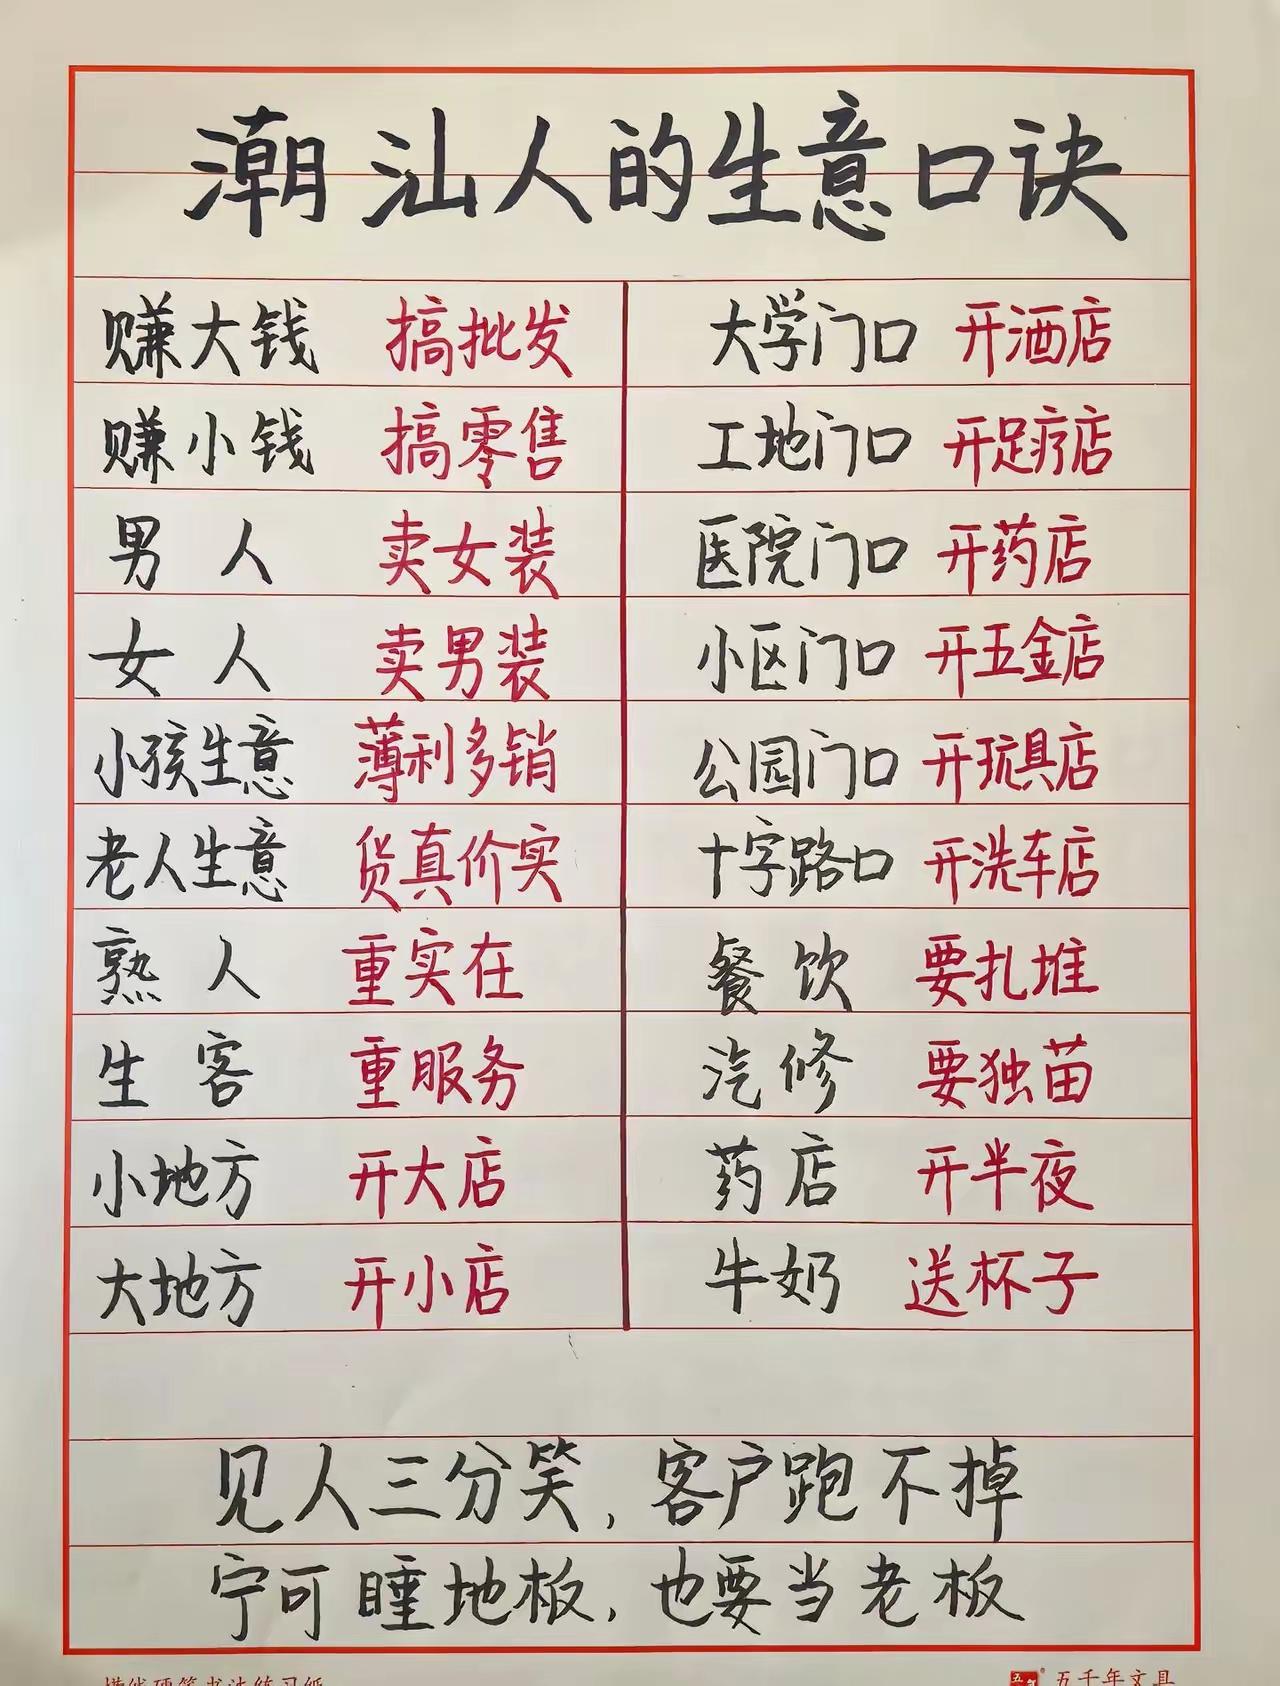 潮汕人的生意口诀
赚大钱 搞批发
赚小钱 搞零售
男人 卖女装
女人 卖男装
小孩生意 薄利多销
老人生意 货真价实
熟人 重实在
生客 重服务
小地方 开大店
大地方 开小店
大学门口 开酒店
工地门口 开足疗店
医院门口 开药店
小区门口 开五金店
公园门口 开玩具店
十字路口 开洗车店
餐饮 要扎堆
汽修 要独苗
药店 开半夜
牛奶 送杯子
见人三分笑,客户跑不掉
宁可睡地板,也要当老板
五千年文具